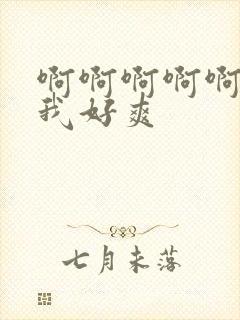 啊啊啊啊啊
我好爽
七月未落